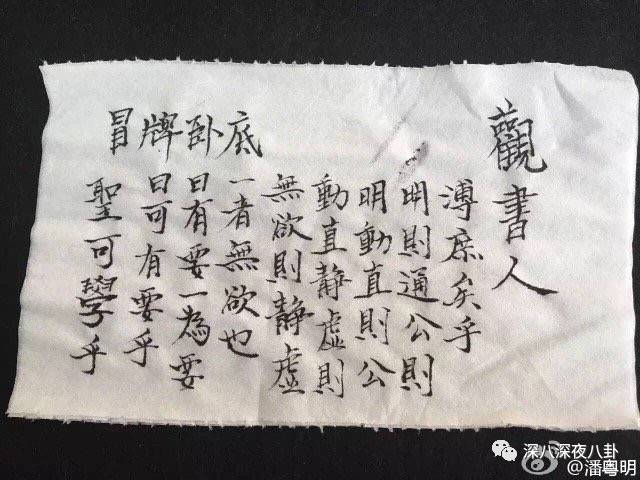 冒牌卧底
聖可學乎
曰可有要乎
曰有要一為要
一者無欲也
無欲則静虛
動直静虛則
明動直則公
明則通公則
溥庶矣乎
觀書人
深八深夜八卦
@潘粤明